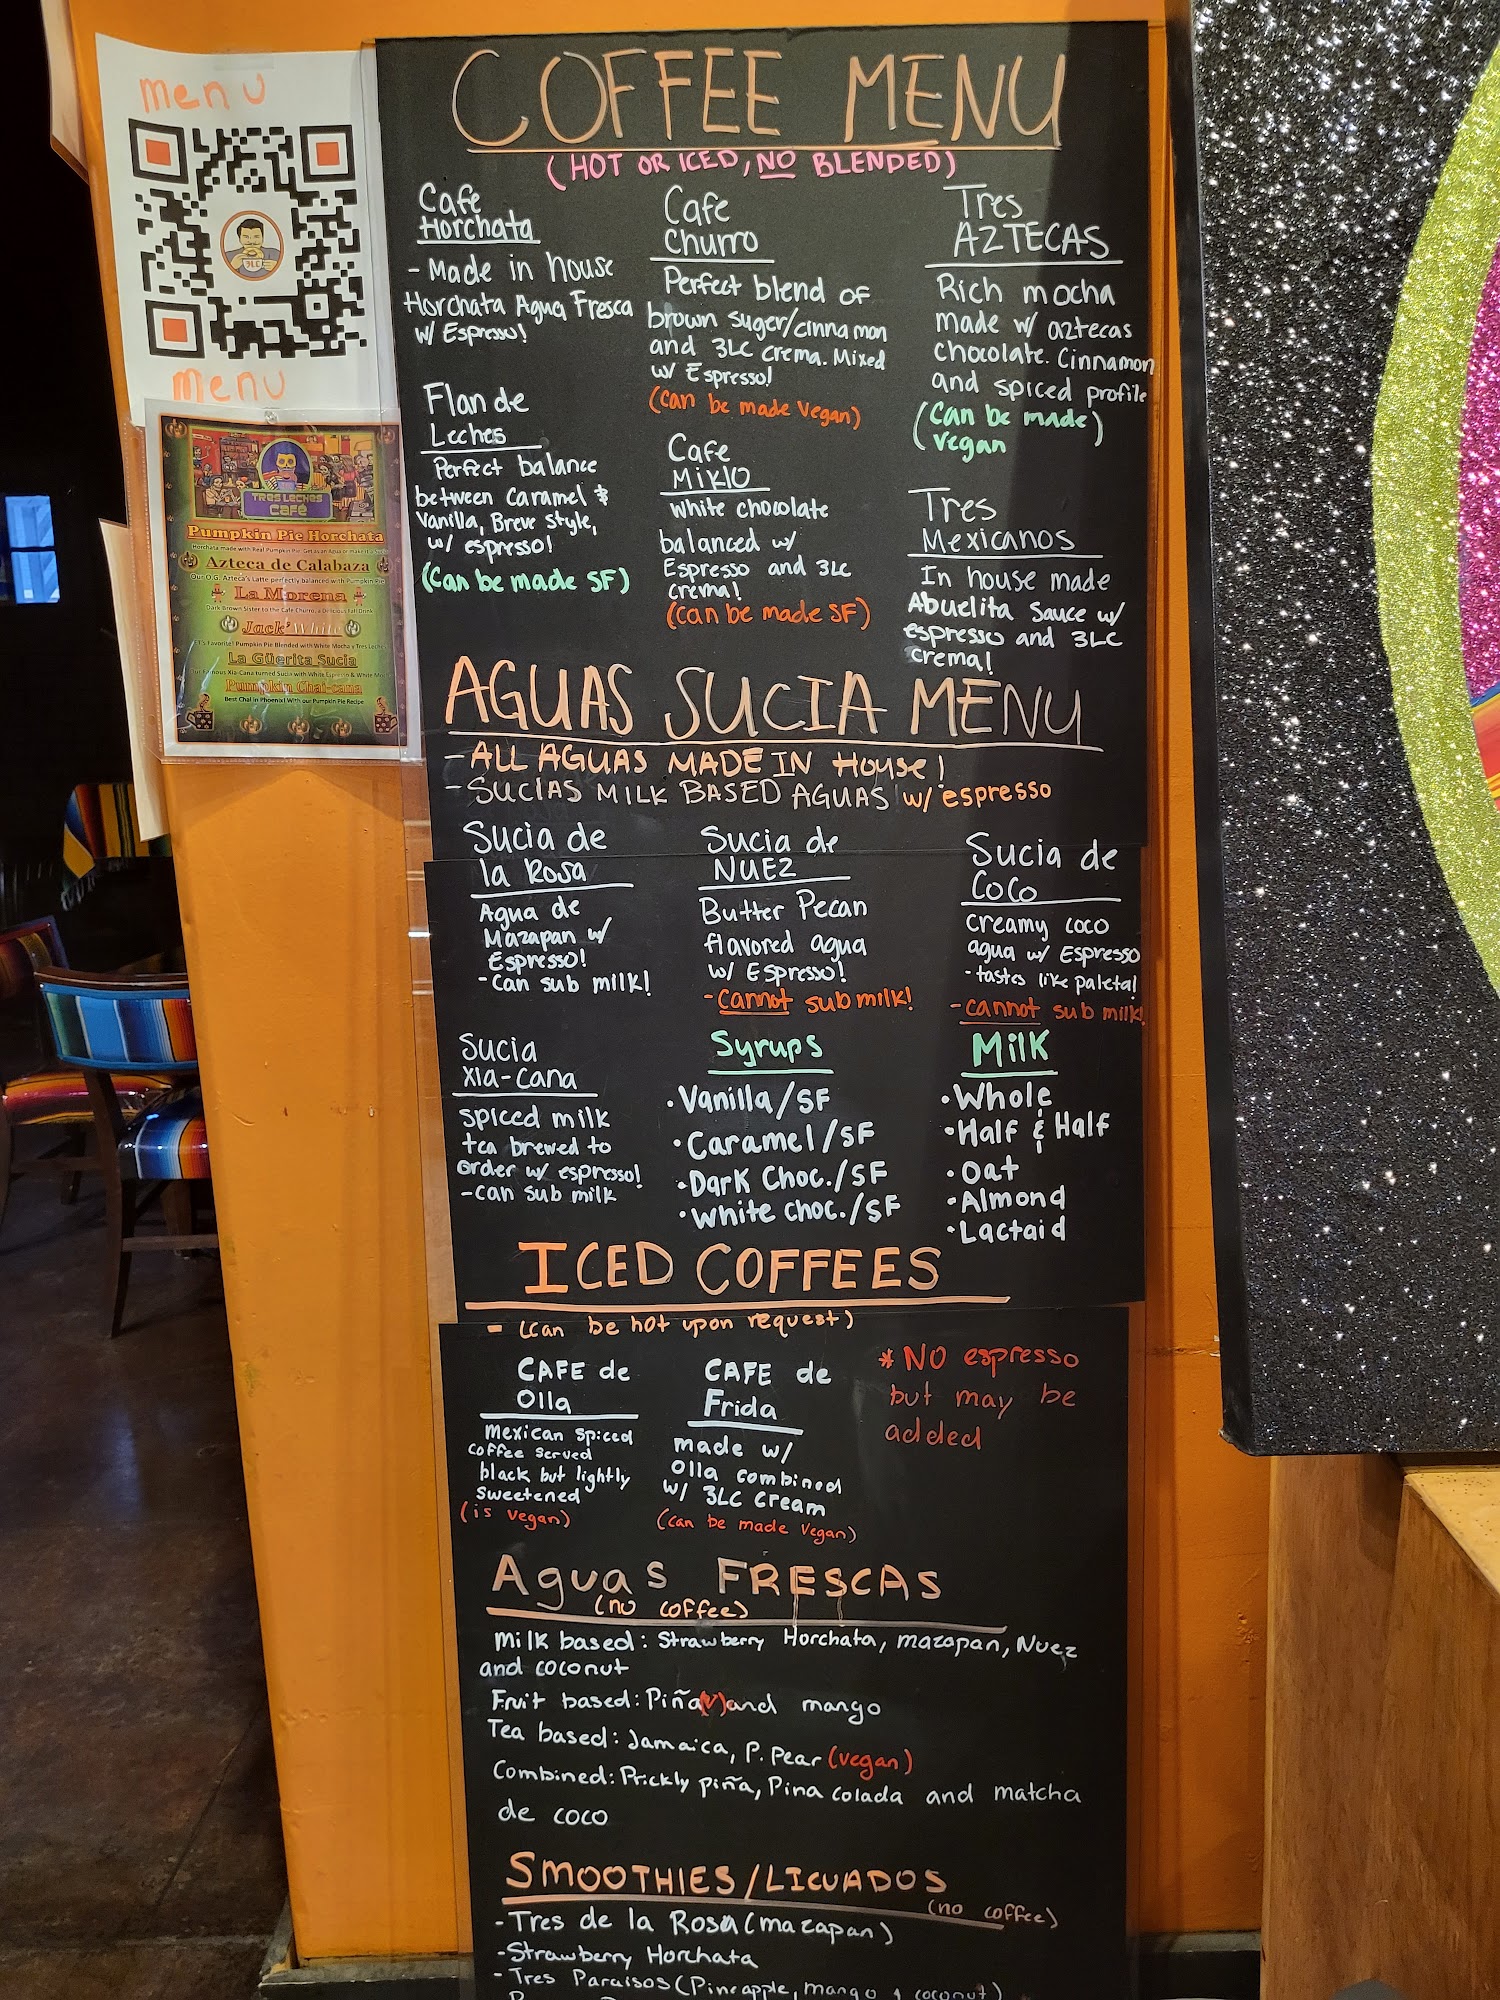 menu
3LC
menu
TRES LECHES
Café
Pumpkin Pie Horchata
Azteca de Calabaza
La Morena
Dark Brown Sister to the Cafe Churro, a Delicious Fall Drink
Jack' White
La Güerita Sucia
Pumpkin Chai-cana
Best Chai in Phoenix! With our Pumpkin Pie Recipe
COFFEE MENU
(HOT OR ICED, NO BLENDED)
Cafe
Horchata
- Made in house
Horchata Agua Fresca
w/ Espresso!
Flan de
Leches
Perfect balance
between Caramel &
Vanilla, Breve Style,
w/ espresso!
(Can be made SF)
Cafe
Churro
Perfect blend of
brown suger/cinnamon
and 3LC crema. Mixed
w/ Espresso!
(can be made Vegan)
Cafe
MiKlO
white chocolate
balanced w/
Espresso and 3LC
crema!
(can be made SF)
Tres
AZTECAS
Rich mocha
made w/ aztecas
chocolate. Cinnamon
and spiced profile
(Can be made)
vegan
Tres
Mexicanos
In house made
Abuelita Sauce w/
espresso and 3LC
crema!
AGUAS SUCIA MENU
-ALL AGUAS MADE IN House!
-SUCIAS MILK BASED AGUAS w/ espresso
Sucia de
la Rosa
Agua de
Mazapan w/
Espresso!
-Can sub milk!
Sucia de
NUEZ
Butter Pecan
flavored agua
w/ Espresso!
-Cannot sub milk!
Sucia de
CoCo
creamy coco
agua w/ Espresso
-tastes like paleta!
-cannot sub milk!
Sucia
XIa-cana
spiced milk
tea brewed to
order w/ espresso!
-can sub milk
Syrups
•Vanilla/SF
•Caramel/SF
•Dark Choc./SF
•White choc./SF
Milk
•Whole
•Half & Half
•Oat
•Almond
•Lactaid
ICED COFFEES
- (can be hot upon request)
CAFE de
Olla
mexican spiced
coffee served
black but lightly
sweetened
(is vegan)
CAFE de
Frida
made w/
Olla combined
w/ 3LC cream
(can be made vegan)
*NO espresso
but may be
added
Aguas FRESCAS
(no coffee)
Milk based: Strawberry Horchata, mazapan, Nuez
and coconut
Fruit based: Piña(v)and mango
Tea based: Jamaica, P. Pear (vegan)
Combined: Prickly piña, Pina colada and matcha
de coco
SMOOTHIES/LICUADOS
(no coffee)
-Tres de la Rosa (mazapan)
-Strawberry Horchata
-Tres Paraisos (Pineapple, mango & coconut)